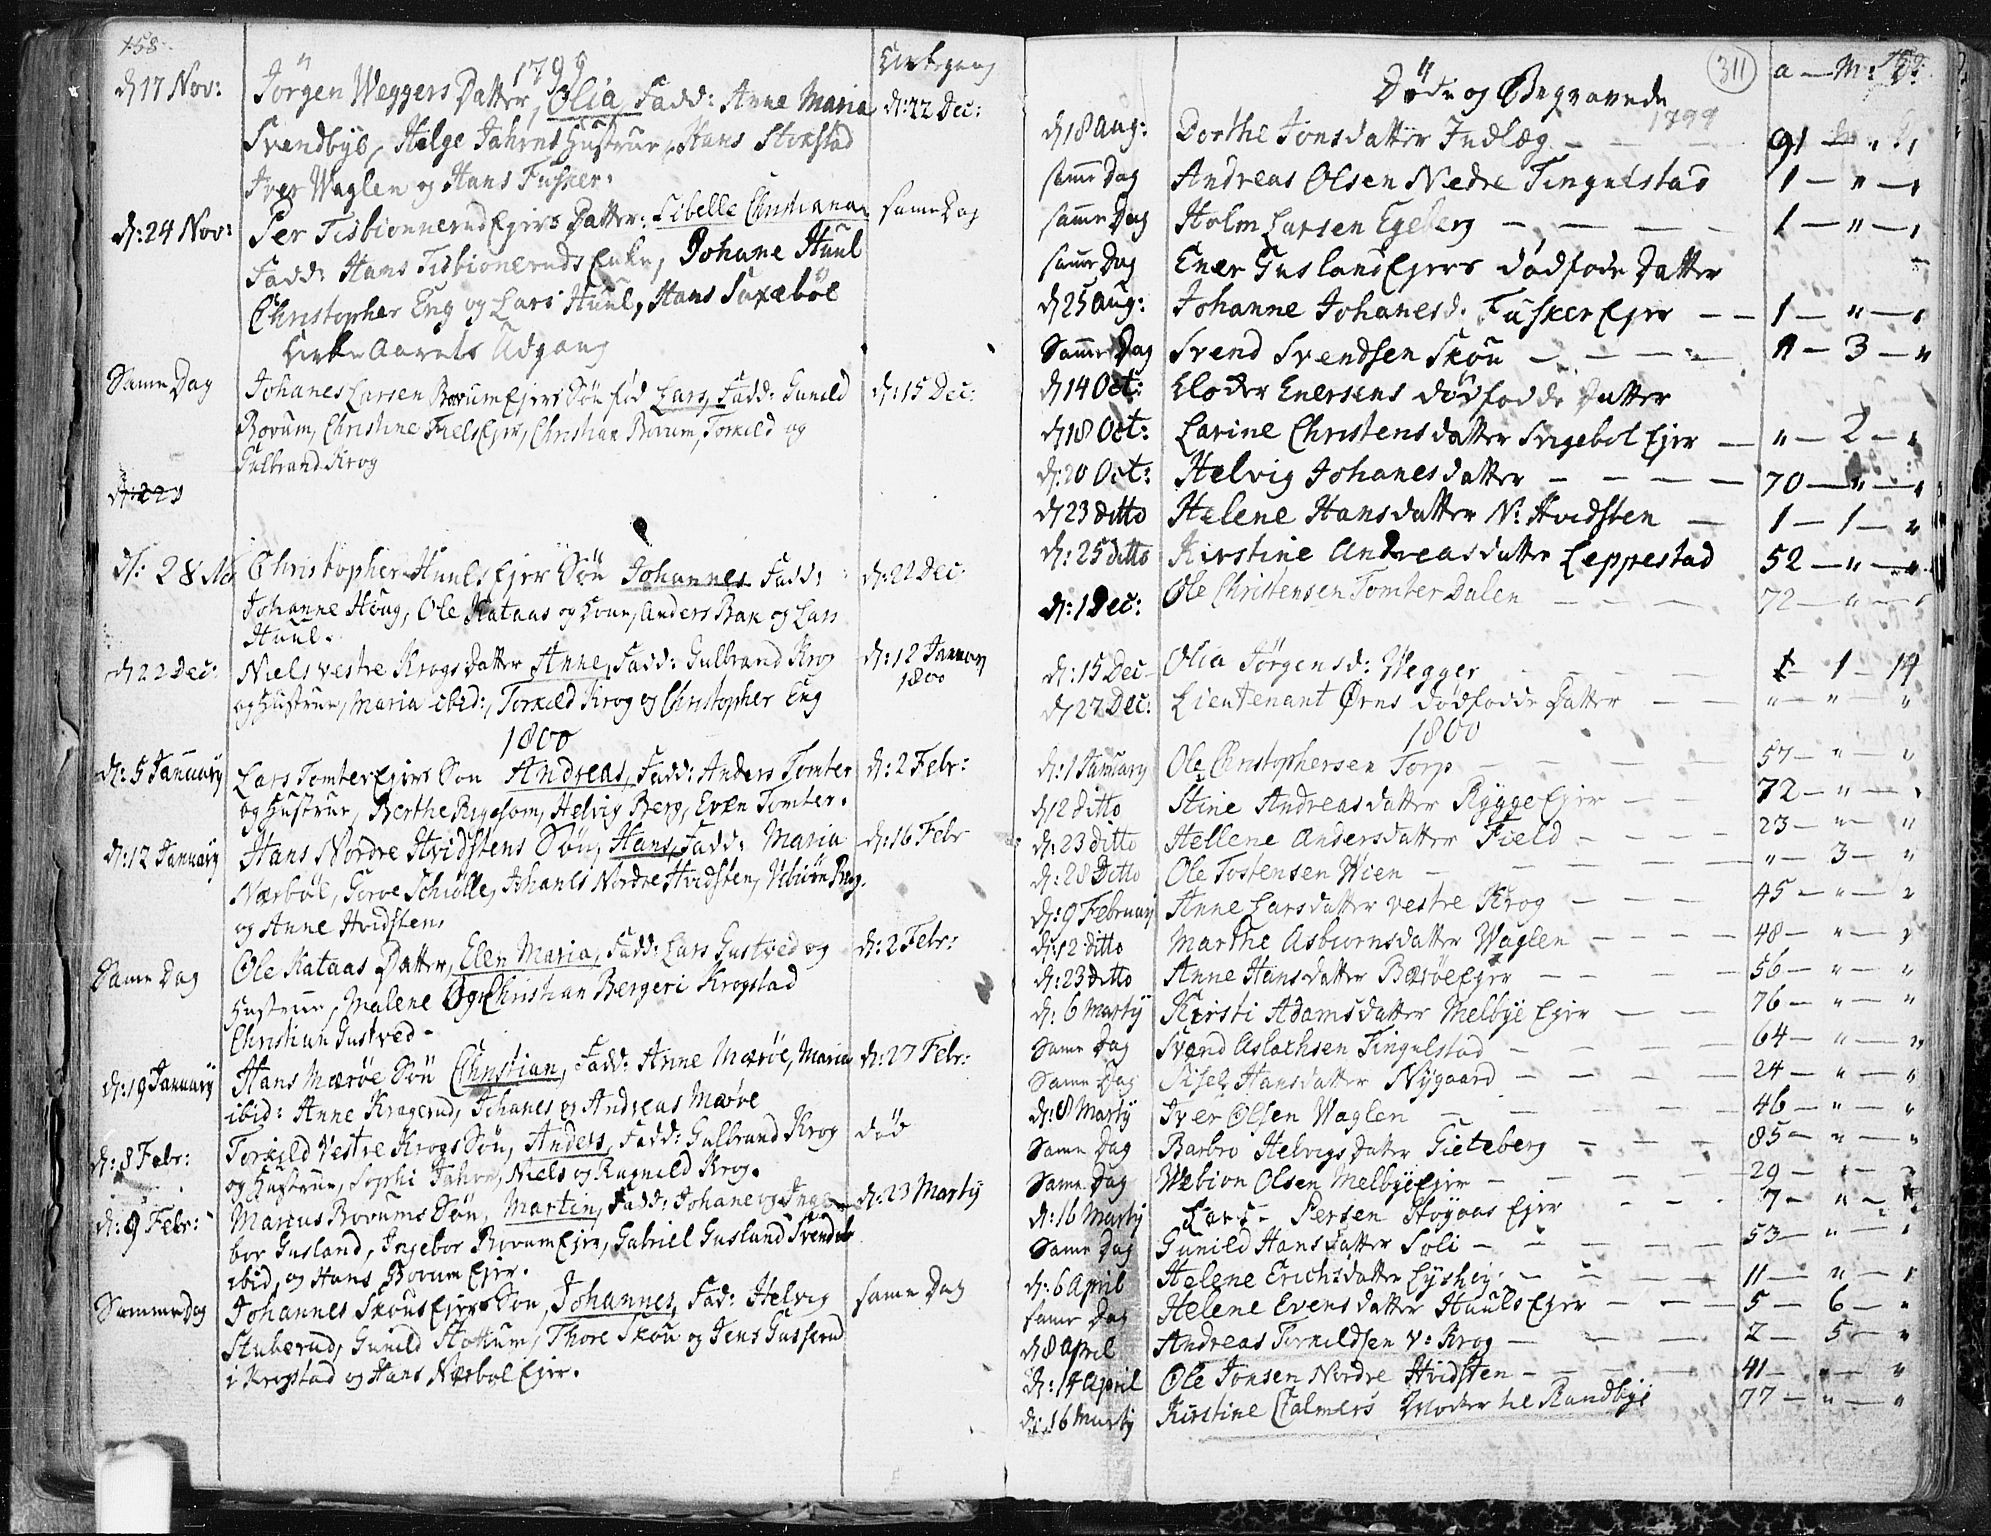 158
1799
Kirkegang
d: 17 Nov: Jörgen Weggers Datter, Olia, Fadd: Anne Maria d: 22 Dec:
Svendbye, Helge Jahrens Hustrue, Hans Stokstad
Iver Waglen og Hans Fusker.
d: 24 Nov: Per Tisbionnerud Ejers Datter: Sibelle Christiana same Dag
Fadd: Hans Tisbioneruds Enke, Johane Huul
Christopher Eng og Lars Huul, Hans Saxebôl
Kirke Aarets Udgang
Same Dag Johanes Larsen Borum Ejers Sön fød Lars, Fadd: Gunild d: 15 Dec:
Borum, Christine Fiels Ejer, Christian Borum, Torkild og
Gulbrand Krog
d: 22
d: 28 No Christopher Huuls Ejer Sön Johannes Fadd: d: 22 Dec:
Johanne Houg, Ole Kataas og Kone, Anders Bak og Lars
Huul.
d: 22 Dec: Niels vestre Krogs Datter Anne, Fadd: Gulbrand Krog d: 12 January
og Hustrue, Maria ibid:, Torkild Krog og Christopher Eng 1800
1800
d: 5 January Lars Tomter Ejers Son Andreas, Fadd: Anders Tomter d: 2 Febr:
og Hustrue, Berthe Rygesom, Helvig Berg, Even Tomter.
d: 12 January Hans Nordre Hvidstens Sön, Hans, Fadd: Maria d: 16 Febr
Nærböl, Torve Schiölle, Johanes Nordre Hvidsten, Vebiörn
og Anne Hvidsten.
Same Dag Ole Kataas Datter, Elen Maria, Fadd: Lars Gustved og d: 2 Febr:
Hustrue, Malene og Christian Berger i Krogstad
Christian Gustved
d: 19 January Hans Mærøe Sön Christian, Fadd: Anne Mærøe, Maria d: 27 Febr:
ibid: Anne Kragerud, Johanes og Andreas Mærøe
d: 8 Febr: Torkild Vestre Krogs Søn, Anders, Fadd: Gulbrand Krog død
og Hustrue, Sophi Jahren, Niels og Ragnild Krog.
d: 9 Febr: Marcus Borums Sön, Martin, Fadd: Johane og Inge d: 23 Marty
bor Gusland, Ingebor Borum Ejer, Gabriel Gusland Svend
ibid, og Hans Borum Ejer.
Samme Dag Johannes Skous Ejers Son, Johannes, Fad: Helvig same Dag
Stuberud, Gunild Hottum, Thore Skou og Jens Gusserud
i Krogstad og Hans Nærbol Ejer.
311
Döde og Begravede a — M: D:
1799
d 18 Aug: Dorthe Jonsdatter Indlæg — 91 — " — "
samme Dag Andreas Olsen Nedre Tingulstad 1 — " — "
samme Dag Holm Larsen Egeberg — 1 — " — "
samme Dag Ener Gusland Ejers dödfødde Datter
d 25 Aug: Johanne Johanesd. Fusker Ejer — 1 — " — "
Samme Dag Svend Svendsen Skou — " — 3 — "
d 14 Oct: Kloder Enersens dödfødde Datter
d 18 Oct: Larine Christensdatter Svgebol Ejer — " — 2 — "
d: 20 Oct: Helvig Johanesdatter — 70 — " — "
d 23 ditto Helene Hansdatter N: Hvidsten — 1 — 1 — "
d: 25 ditto Kirstine Andreasdatter Leppestad 52 — " — "
d: 1 Dec: Ole Christensen Tomter Dalen — 72 — " — "
d: 15 Dec Olia Jörgensd: Wegger — 1 — 14
d 27 Dec: Lieutenant Ørns dödfødde Datter — " — " "
1800
d: 1 January Ole Christophersen Torp — 57 — " — "
d 2 ditto Stine Andreasdatter Rygge Ejer — 72 — " — "
d: 23 ditto Hellene Andersdatter Field — 23 — " — "
d: 28 Ditto Ole Tostensen Wien — " — 3 — "
d: 9 February Anne Larsdatter vestre Krog — 45 — " — "
d: 12 ditto Marthe Asbiornsdatter Waglen — 48 — " — "
d: 23 ditto Anne Hansdatter Bærøe Ejer — 56 — " — "
d: 6 Marty Kirsti Adamsdatter Melbye Ejer — 76 — " — "
Same Dag Svend Aslachsen Tingulstad — 64 — " — "
Same Dag Sisel Hansdatter Nygaard — 24 — " — "
d: 8 Marty Iver Olsen Waglen — 46 — " — "
Same Dag Barbro Helvigsdatter Gieteberg — 85 — " — "
Same Dag Webion Olsen Melbye Ejer — 29 — " — "
d: 16 Marty Lars Persen Høyaas Ejer — 7 — " —
Same Dag Gunild Hansdatter Soli — 53 — " — "
d: 6 April Helene Erichsdatter Lyshøy — 11 — " — "
same Dag Helene Evensdatter Huuls Ejer — 5 — 6 — "
d 8 April Andreas Torkildsen V: Krog — 2 — 5 — "
d: 14 April Ole Jonsen Nordre Hvidsten — 41 — " — "
d: 16 Marty Kirstine Calmers Moder til Randbye 77 — " — "